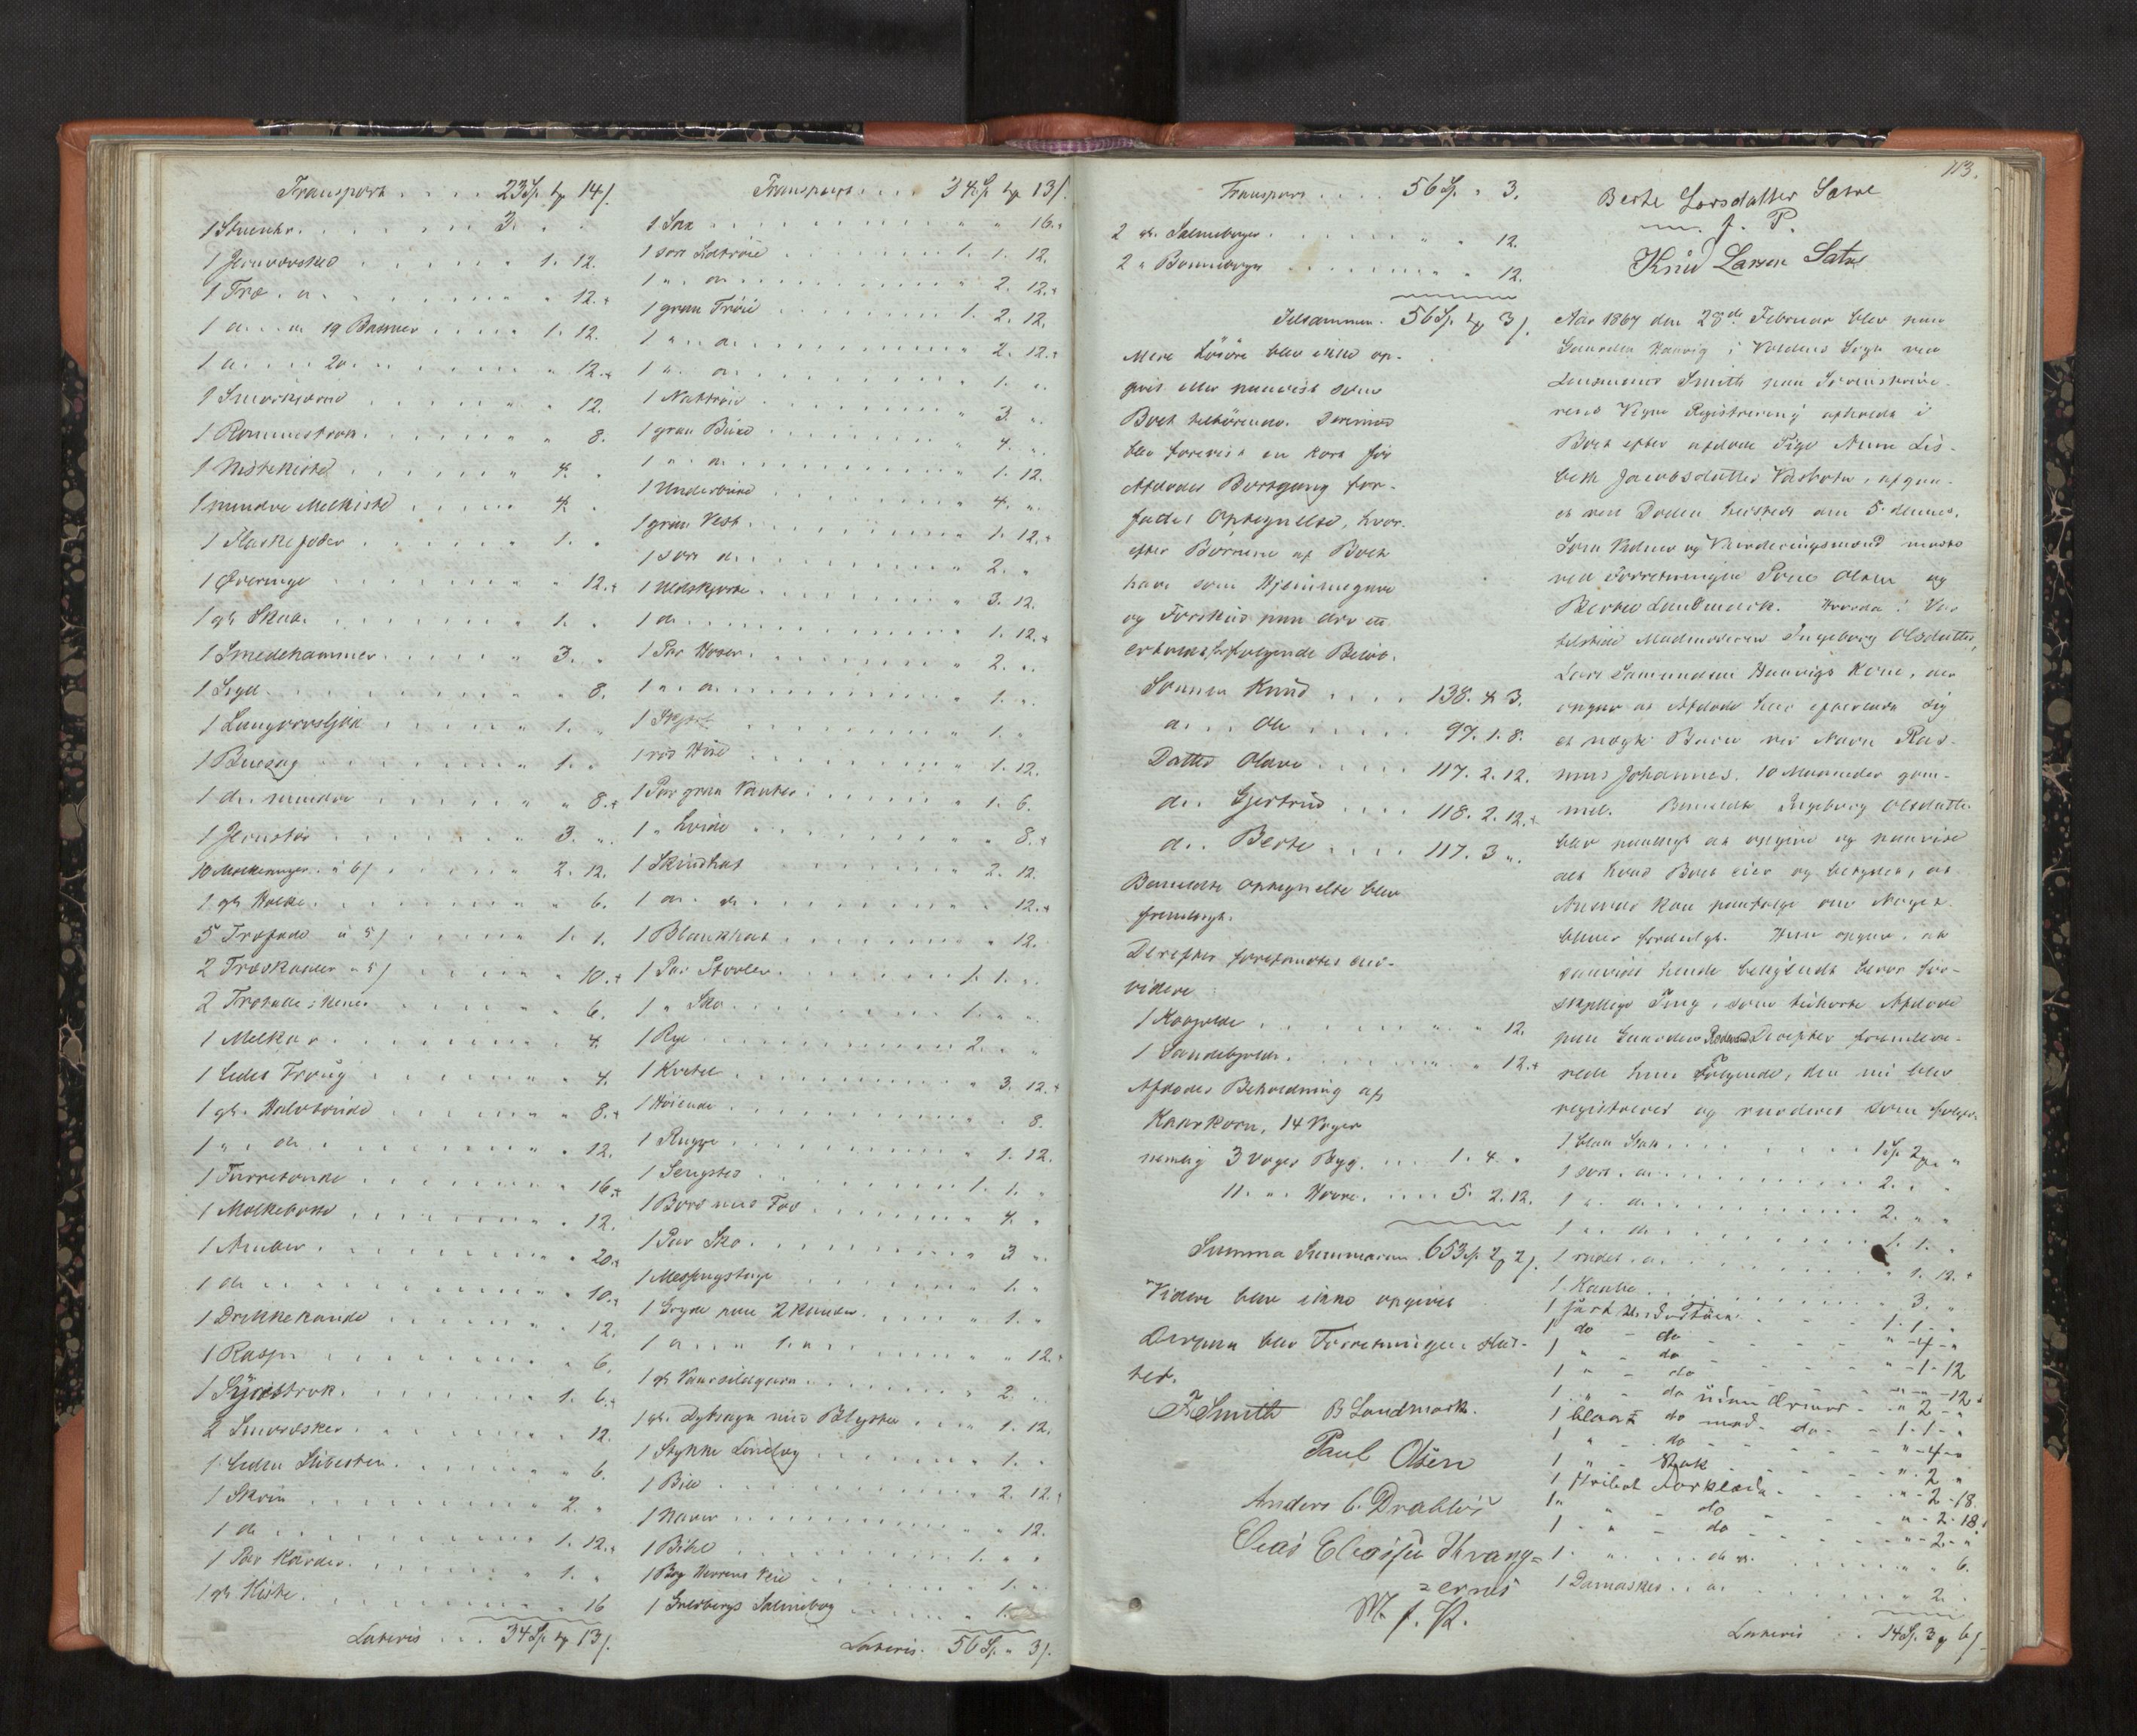 Transport . . . . 23 Sp. 4 14/.
1 Stueuhr . . . . . . 3. " "
1 Jernvovsked . . . . . " 1. 12.
1 Træ . d. . . . . . . " " 12.
1 d. . . m 19 Bommer . . . . 1. 12.
1 d. . . . 20 . . . . . . " 12.
1 Smørkjerne . . . . . " " 12.
1 Rømmestrok . . . . . . " 8.
1 Nistekiste . . . . . . " 4. "
1 mindre Melkiste . . . . . " 4. "
1 Flaskefoder . . . . . . 1. "
1 . . . . . . . . " " 12.
1 gl. Skab. . . . . . . " 1. "
1 Smedehammer . . . . . " 3. "
1 Sigd . . . . . . . " " 8.
1 Langorvsljaa . . . . . . 1. "
1 Buesag . . . . . . . 1. "
1 do. mindre . . . . . . " " 8.
1 Jernstør . . . . . . " 3. "
10 Melkeringer à 6/ . . . . " 2. 12.
1 gl. Holke . . . . . . . " 6.
5 Træfade à 5/ . . . . . 1. 1.
2 Træskaaler à 5/ . . . . . " 10.
2 Trætallerkener . . . . . . 6.
1 Melkar . . . . . . . . 4.
1 lidet Troug . . . . . . . " 4.
1 gl. Halvtønde . . . . . . " 8.
1 " . do. . . . . . . . " 12.
1 Turretønde . . . . . . . " 16.
1 Molkebotte . . . . . . . " 12.
1 Anker . . . . . . . . " 20.
1 do . . . . . . . . . " 10.
1 Drikkekande . . . . . . . " 12.
1 Rasp . . . . . . . . . 6.
1 . . . . . . . 1. 6.
2 Smøræsker . . . . . . . " 12.
1 liden . . . . . . " 6.
1 Skrin . . . . . . . . 2. "
1 do . . . . . . . . . 1. 12.
1 Par Karder . . . . . . . 1. "
1 gl. Kiste . . . . . . . . " 16
Lateris . . . 34 Sp. 4 13/.
Transport . . . . 34 Sp. 4 13/.
1 Sax . . . . . . . . . " " 16.
1 sort Kaltrøie . . . . . . 1. 1. 12.
1 " . do . . . . . . . . . " 2. 12.
1 graa Trøie . . . . . . . 1. 2. 12.
1 " . . d. . . . . . . . . " 2. 12.
1 " . . d. . . . . . . . . " 1. "
1 Nattrøie . . . . . . . . " 3. "
1 graa Buxe . . . . . . . . " 4. "
1 " . d. . . . . . . . . . " 1. 12.
1 Underbuxe . . . . . . . . " 4. "
1 graa Vest . . . . . . . . " 1. 12.
1 sort d. . . . . . . . . . " 2. "
1 Uldskjorte . . . . . . . . " 3. 12.
1 do . . . . . . . . . . . 1. 12.
1 Par Hoser . . . . . . . . " 2. "
1 " . d. . . . . . . . . . . " 1. "
1 . . . . . . . . . " 1. "
1 rød Hue . . . . . . . . . " 1. 12.
1 Par graa Vanter . . . . . . " 1. 6.
1 " hvide . . . . . . . . . " " 8.
1 Skindhat . . . . . . . . " 2. 12.
1 do . do . . . . . . . . . " 12.
1 Blankhat . . . . . . . . " 12.
1 Par Støvler . . . . . . . 1. 1. "
1 " Sko . . . . . . . . . 1. " "
1 Rye . . . . . . . . . . 2. " "
1 Kvitel . . . . . . . . . " 3. 12.
1 Høiende . . . . . . . . . " 8.
1 Rugge . . . . . . . . . " 1. 12.
1 Sengsted . . . . . . . . 1. 1. "
1 Bord med Fod . . . . . . . " 4. "
1 Par Sko . . . . . . . . . " 3 "
1 Messingstage . . . . . . . " 1. "
1 Gryde paa 2 Kander . . . . . " 1. "
1 d. . . . 1. d. . . . . . . . " 12.
1 gl. Vaarsildgarn . . . . . . " 2. "
1 gl. Dybsagn med Blyster . . . " 1. 12.
1 Stykke . . . . . . . 1. "
1 Bile . . . . . . . . . . 2. 12.
1 Naver . . . . . . . . . " " 12.
1 Bibel . . . . . . . . . 1. " "
1 Bog Herrens Veie . . . . . . " 1. "
1 Guldbergs Salmebog . . . . . " 1.
Lateris . 56 Sp. " 3/.
Transport . . . . 56 Sp. " 3.
2 gl. Salmebøger . . . . . " " 12.
2 " Bønnebøger . . . . . " " 12.
Tilsammen . 56 Sp. 4 3/.
Mere Løsøre blev ikke op-
givet eller paavist som
Boet tilhørende. Derimod
blev forevist en kort før
Afdødes Bortgang for-
fattet Optegnelse, hvor-
efter Børnene af Boet
have som Hjemmegave
og Forskud paa Arv
erholdt følgende Beløb.
Sønnen Knud . . . . 138. 4 3.
d. . . Ole . . . . . 97. 1. 8.
Datter Olave . . . . . 117. 2. 12.
do. Gjertrud . . . . 118. 2. 12.
do. Berte . . . . 117. 3 ".
Bemeldte Optegnelse blev
fremlagt.
Derefter foretoges
videre
1 . . . . . . . " " 12.
1 . . . . . . . " " 12.
Afdødes Beholdning af
Kaarkorn, 14 Voger
nemlig 3 Voger Byg . . . 1. 4. "
11. " . Havre . . . . 5. 2. 12.
Summa Summarum . 653 Sp. 2 2/.
Videre blev ikke opgivet
Dermed blev Forretningen slut-
tet.
F. Smith B Landmark.
Paul Olsen
Anders C. Drabløs
Elias Eliassen Kvang-
=ernes
M. f. P.
113.
Berte Larsdatter Satre
m. f. P.
Knud Larsen Satre
Aar 1867 den 28de Februar blev paa
Gaarden Haavig i Voldens Sogn ved
Lensmand Smith paa Sorenskrive-
rens Vegne Registrering afholdt i
Boet efter afdøde Pige Anne Lis-
beth Jacobsdatter Vasbotn, afgaa-
et ved Døden hersteds den 5. dennes.
Som Vidner og Vurderingsmænd mødte
ved Forretningen Svend Olsen og
Berthe Landmark. Hvorda: Var
tilstede Madmoderen Ingeborg Olsdatter,
Lars Samundsen Haavigs Kone, der
opgav at Afdøde har efterladt sig
et uægte Barn ved Navn Ras-
mus Johannes, 10 Maaneder gam-
mel. Bemeldte Ingeborg Olsdatter
blev paalagt at opgive og paavise
alt hvad Boet eier og betydet, at
Ansvar kan paafølge om Noget
bliver fordulgt. Hun opgav, at
saavidt hende bekjendt beror for-
skjellige Ting, som tilhørte Afdøde
paa Gaarden Derefter frembæ-
rede hun Følgende, der nu blev
registreret og vurderet som følger.
1 blaa Stak . . . . . . . 1 Sp. 2 "
1 sort . d. . . . . . . . . . 2. " "
1 " . d. . . . . . . . . . . 2. " "
1 " . d. . . . . . . . . . . 1. 1. "
1 rudet . d. . . . . . . . . . " 1. 12.
1 Kaabe . . . . . . . . . " 3. "
1 sort . . . 1. 1 - "
1 do - do - - - " - 4 - "
1 " - do - - - " - 1 - 12
1 " - do - - - " - " - 12
1 " - do uden Ærmer - - " 2 - "
1 blaat do med do - - 1 - 1 - "
1 " - do - - - " - 4 - "
1 " - Stak - - - " - 2 "
1 Stribet Forklæde - - - " - 2 - 18.
1 " " do - - - " - 2 - 18.
1 - " - do - - - " - 2 - "
1 . " . . . do gl. . . . . . . " " 6.
1 Damaskes . . d. . . . . . . . " 2. "
Lateris . . 14 Sp. 3 6/.